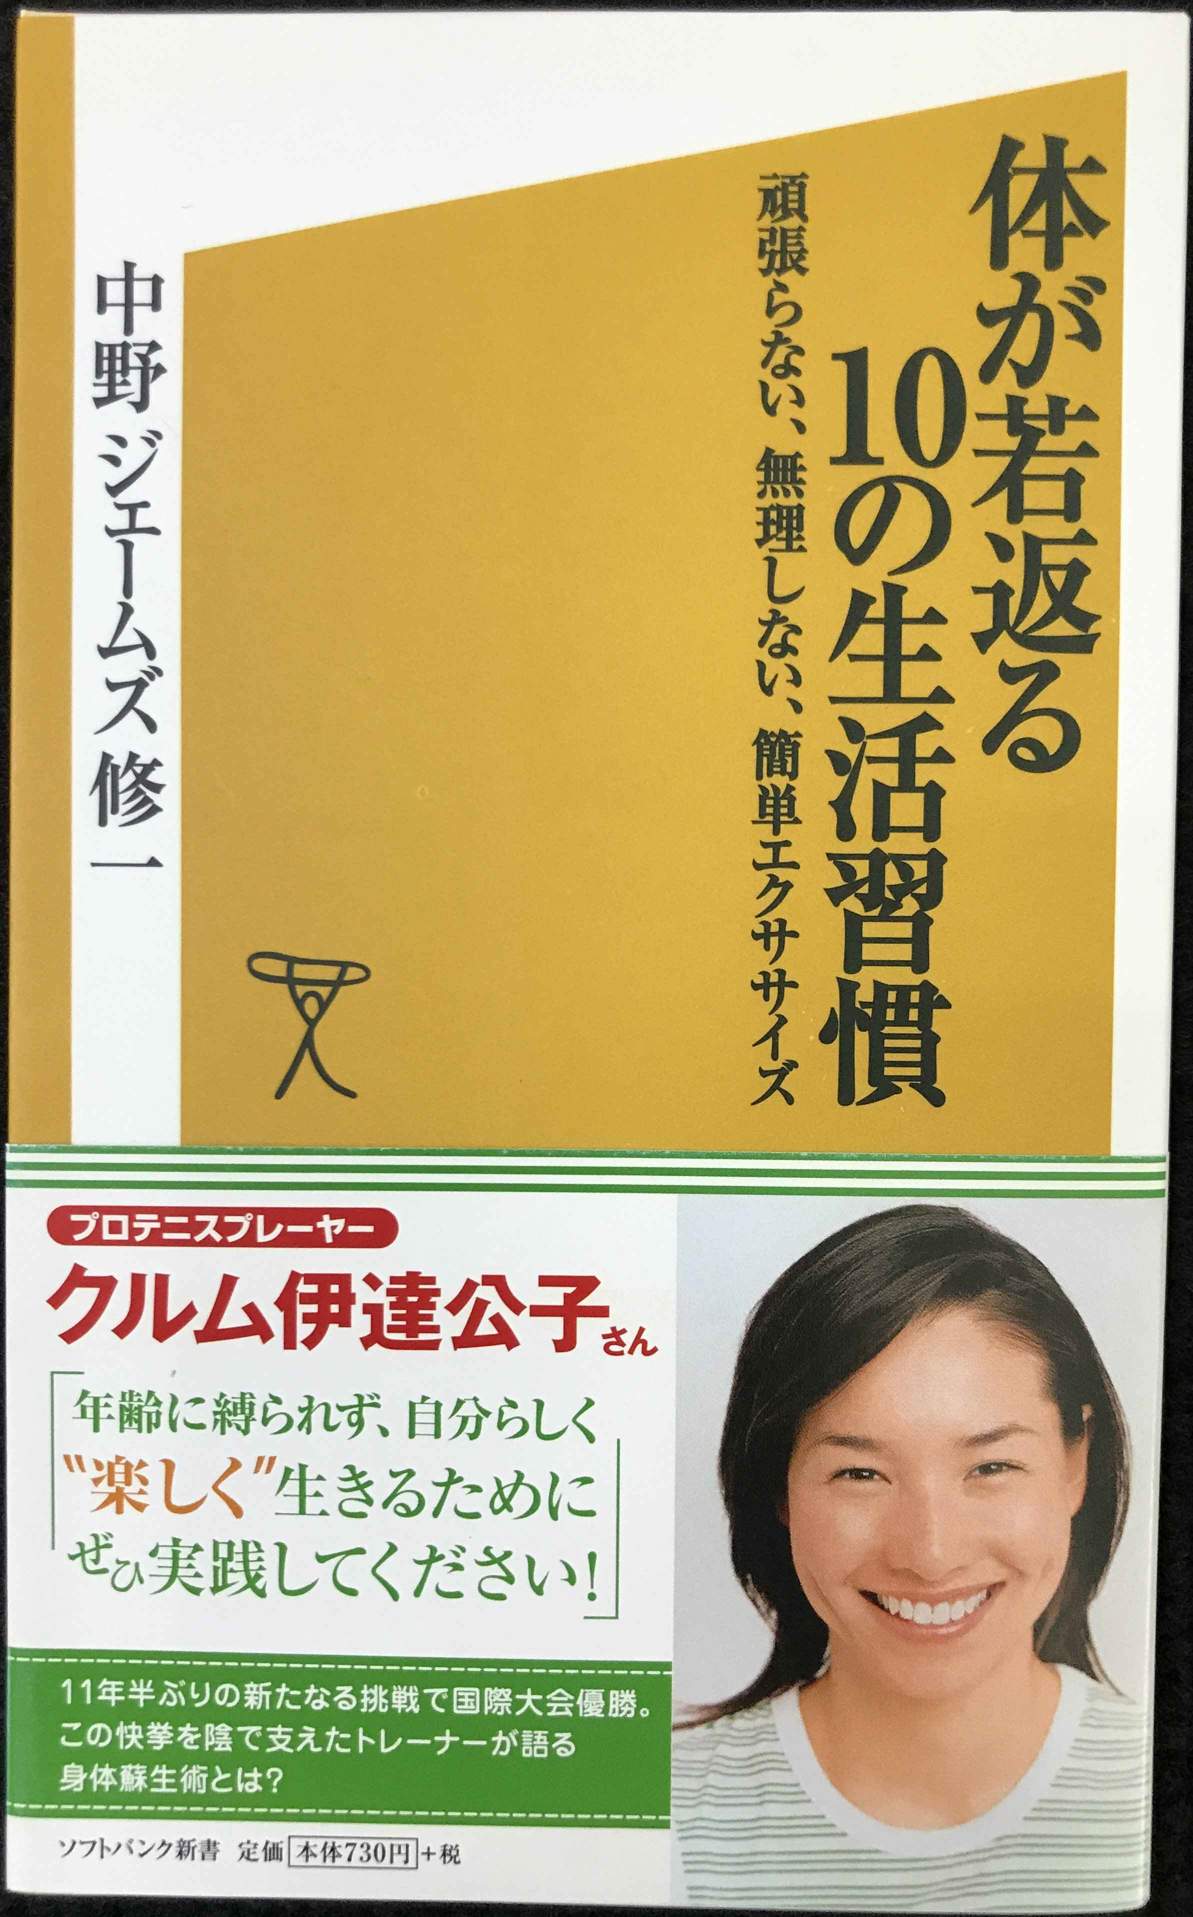 体が若返る
10の生活習慣
頑張らない、無理しない、簡単エクササイズ
中野ジェームズ修一
プロテニスプレーヤー
クルム伊達公子さん
「年齢に縛られず、自分らしく
〝楽しく〟生きるために
ぜひ実践してください!」
11年半ぶりの新たなる挑戦で国際大会優勝。
この快挙を陰で支えたトレーナーが語る
身体蘇生術とは?
ソフトバンク新書 定価 本体730円+税